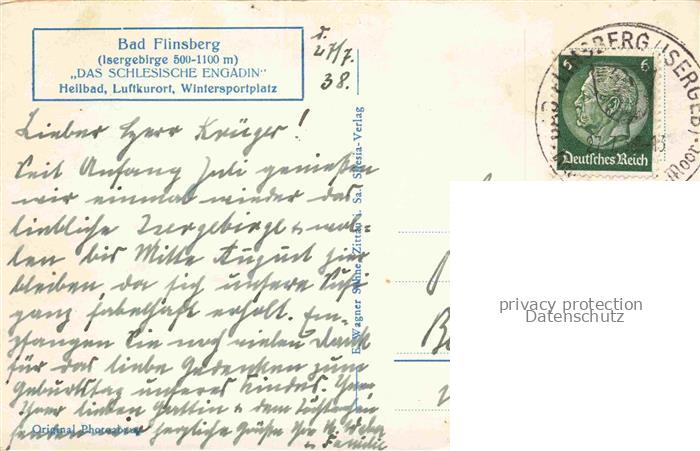 Bad Flinsberg
(Isergebirge 500-1100 m)
„DAS SCHLESISCHE ENGADIN“
Heilbad, Luftkurort, Wintersportplatz
d. 27/7. 38.
Lieber Herr Krüger!
Seit Anfang Juli genießen
wir einmal wieder das
liebliche Isergebirge u. wol-
len bis Mitte August hier
bleiben da sich unsere
ganz fabelhaft erholt. Em-
pfangen Sie noch vielen Dank
für das liebe Gedenken zum
Geburtstag unseres Kindes. Ihnen
Ihrer lieben Gattin u. dem Töchterchen
senden wir herzliche Grüße Ihr
u. Familie
Original Photoabzug
E. Wagner Söhne, Zittau i. Sa. Silesia-Verlag
BAD FLINSBERG (ISERGEB.)
6
Deutsches Reich
privacy protection
Datenschutz